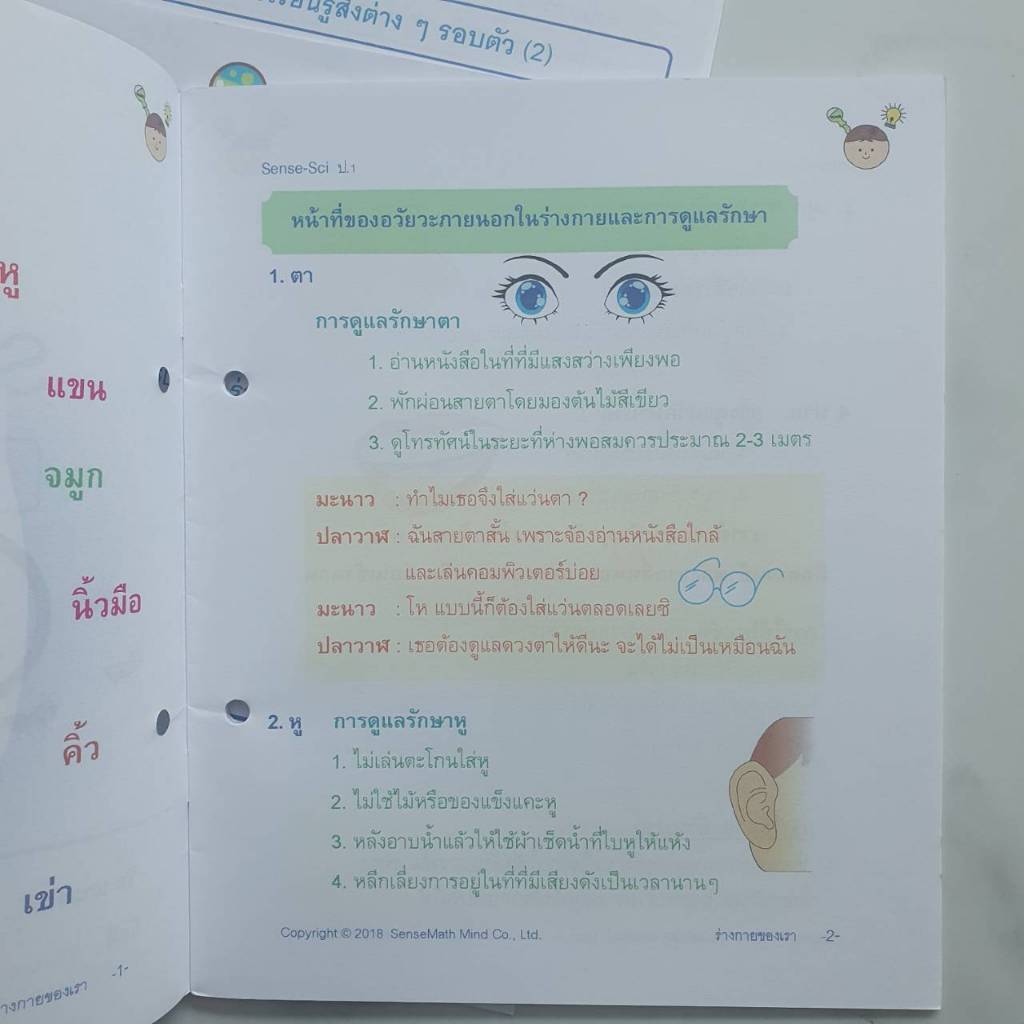 รอบตัว (2)
หู
แขน
จมูก
นิ้วมือ
คิ้ว
เข่า
ร่างกายของเรา -1-
Sense-Sci ป.1
หน้าที่ของอวัยวะภายนอกในร่างกายและการดูแลรักษา
1. ตา
การดูแลรักษาตา
1. อ่านหนังสือในที่ที่มีแสงสว่างเพียงพอ
2. พักผ่อนสายตาโดยมองต้นไม้สีเขียว
3. ดูโทรทัศน์ในระยะที่ห่างพอสมควรประมาณ 2-3 เมตร
มะนาว : ทำไมเธอจึงใส่แว่นตา ?
ปลาวาฬ : ฉันสายตาสั้น เพราะจ้องอ่านหนังสือใกล้
และเล่นคอมพิวเตอร์บ่อย
มะนาว : โห แบบนี้ก็ต้องใส่แว่นตลอดเลยซิ
ปลาวาฬ : เธอต้องดูแลดวงตาให้ดีนะ จะได้ไม่เป็นเหมือนฉัน
2. หู การดูแลรักษาหู
1. ไม่เล่นตะโกนใส่หู
2. ไม่ใช้ไม้หรือของแข็งแคะหู
3. หลังอาบน้ำแล้วให้ใช้ผ้าเช็ดน้ำที่ใบหูให้แห้ง
4. หลีกเลี่ยงการอยู่ในที่ที่มีเสียงดังเป็นเวลานานๆ
Copyright © 2018 SenseMath Mind Co., Ltd. ร่างกายของเรา -2-